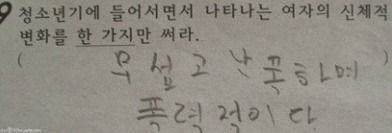 9 청소년기에 들어서면서 나타나는 여자의 신체적
변화를 한 가지만 써라.
( 무섭고 난폭하며 )
폭력적이다